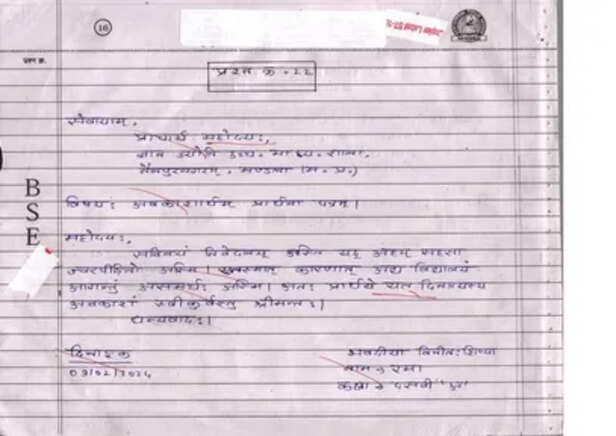 16
प्रश्न क्र.
प्रश्न क्र. 22
सेवायाम्,
प्राचार्य महोदयः,
ज्ञान ज्योति उच्च. माध्य. शाला,
मण्डला (म. प्र.)
विषयः अवकाशार्थम् प्रार्थना पत्रम्।
BSE
महोदयः,
सविनयं निवेदनम् अस्ति यद् अहम् सहसा
ज्वरपीडितो अस्मि। कारणात् अद्य विद्यालयं
आगन्तुं असमर्थः अस्मि। अतः प्रार्थये यत् दिनत्रयस्य
अवकाशं स्वीकुर्वन्तु श्रीमन्तः।
धन्यवादः।
दिनांक
09/02/2024
भवदीया विनीतः शिष्या
नाम - रमा
कक्षा - दसवी